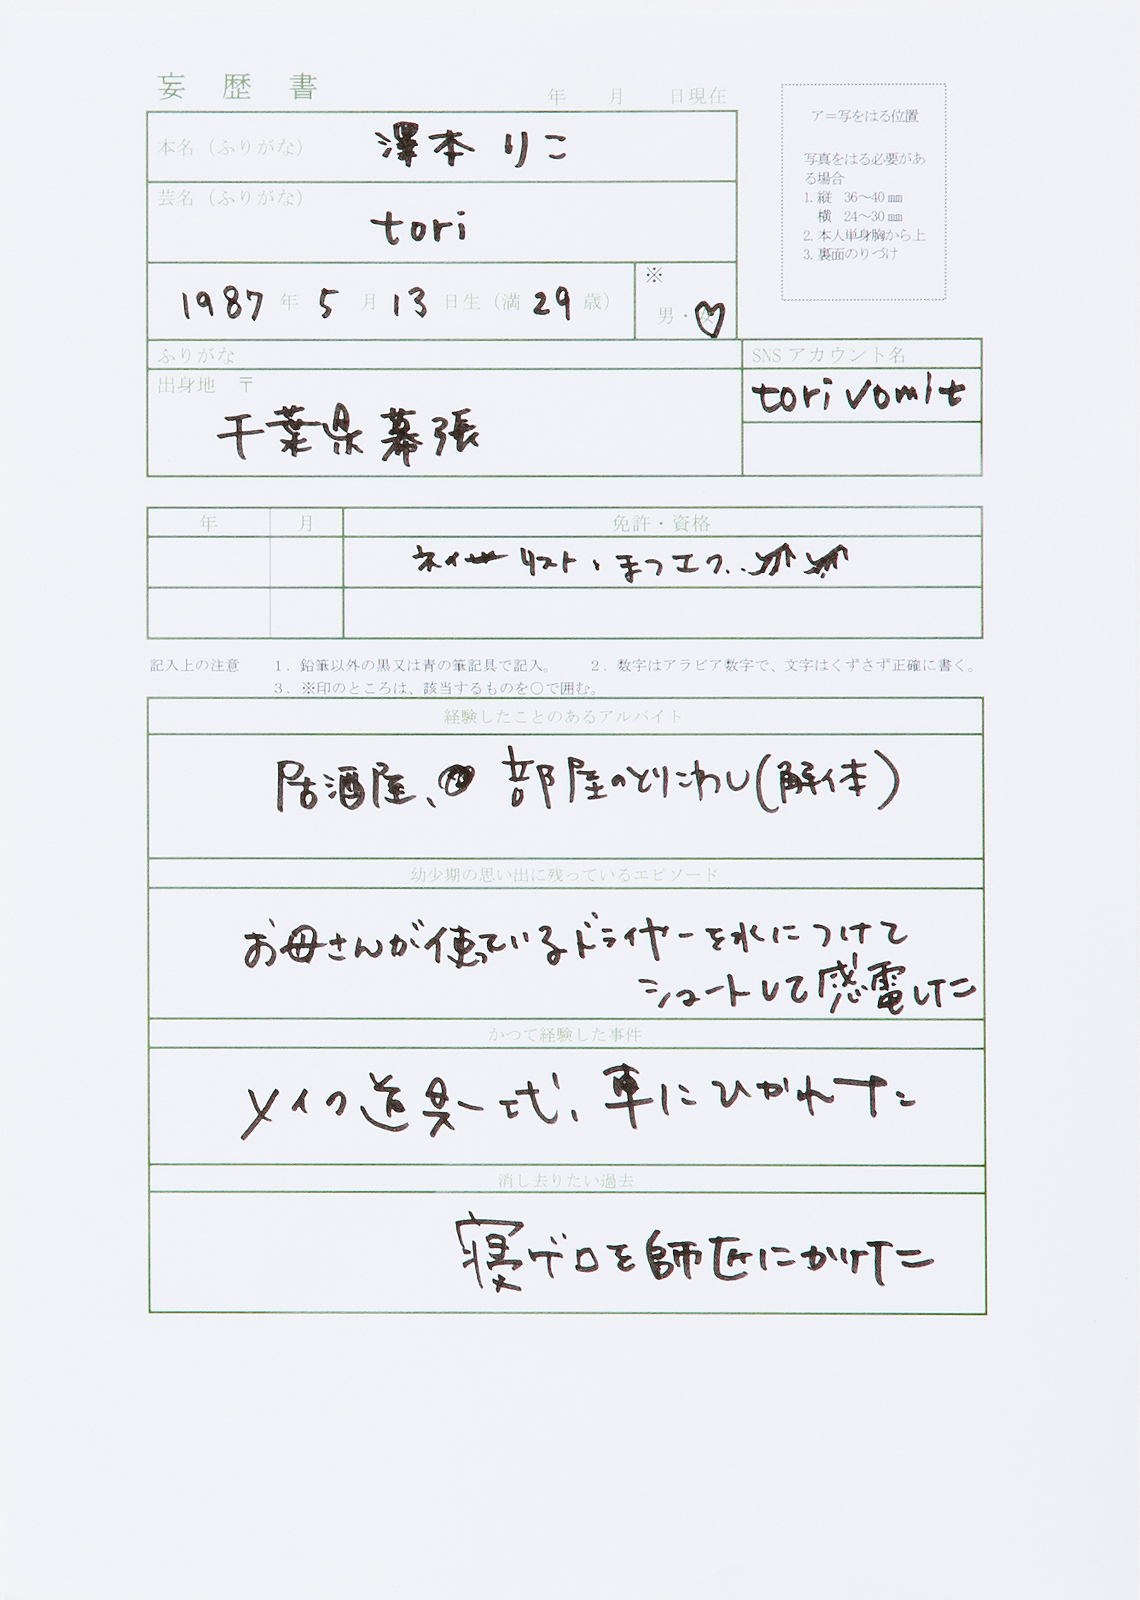 妄歴書
年 月 日現在
ア=写をはる位置
写真をはる必要があ
る場合
1. 縦 36~40㎜
横 24~30㎜
2. 本人単身胸から上
3. 裏面のりづけ
本名（ふりがな） 澤本 りこ
芸名（ふりがな）
tori
1987 年 5 月 13 日生（満 29 歳）
※
男・女
ふりがな
SNS アカウント名
出身地 〒
torivomit
千葉県幕張
年 月 免許・資格
リスト、まつエク..
記入上の注意 1．鉛筆以外の黒又は青の筆記具で記入。 2．数字はアラビア数字で、文字はくずさず正確に書く。
3．※印のところは、該当するものを○で囲む。
経験したことのあるアルバイト
居酒屋、部屋のとりこわし(解体)
幼少期の思い出に残っているエピソード
お母さんが使っているドライヤーを水につけて
ショートして感電した
かつて経験した事件
メイク道具一式、車にひかれた
消し去りたい過去
寝ゲロを師匠にかけた